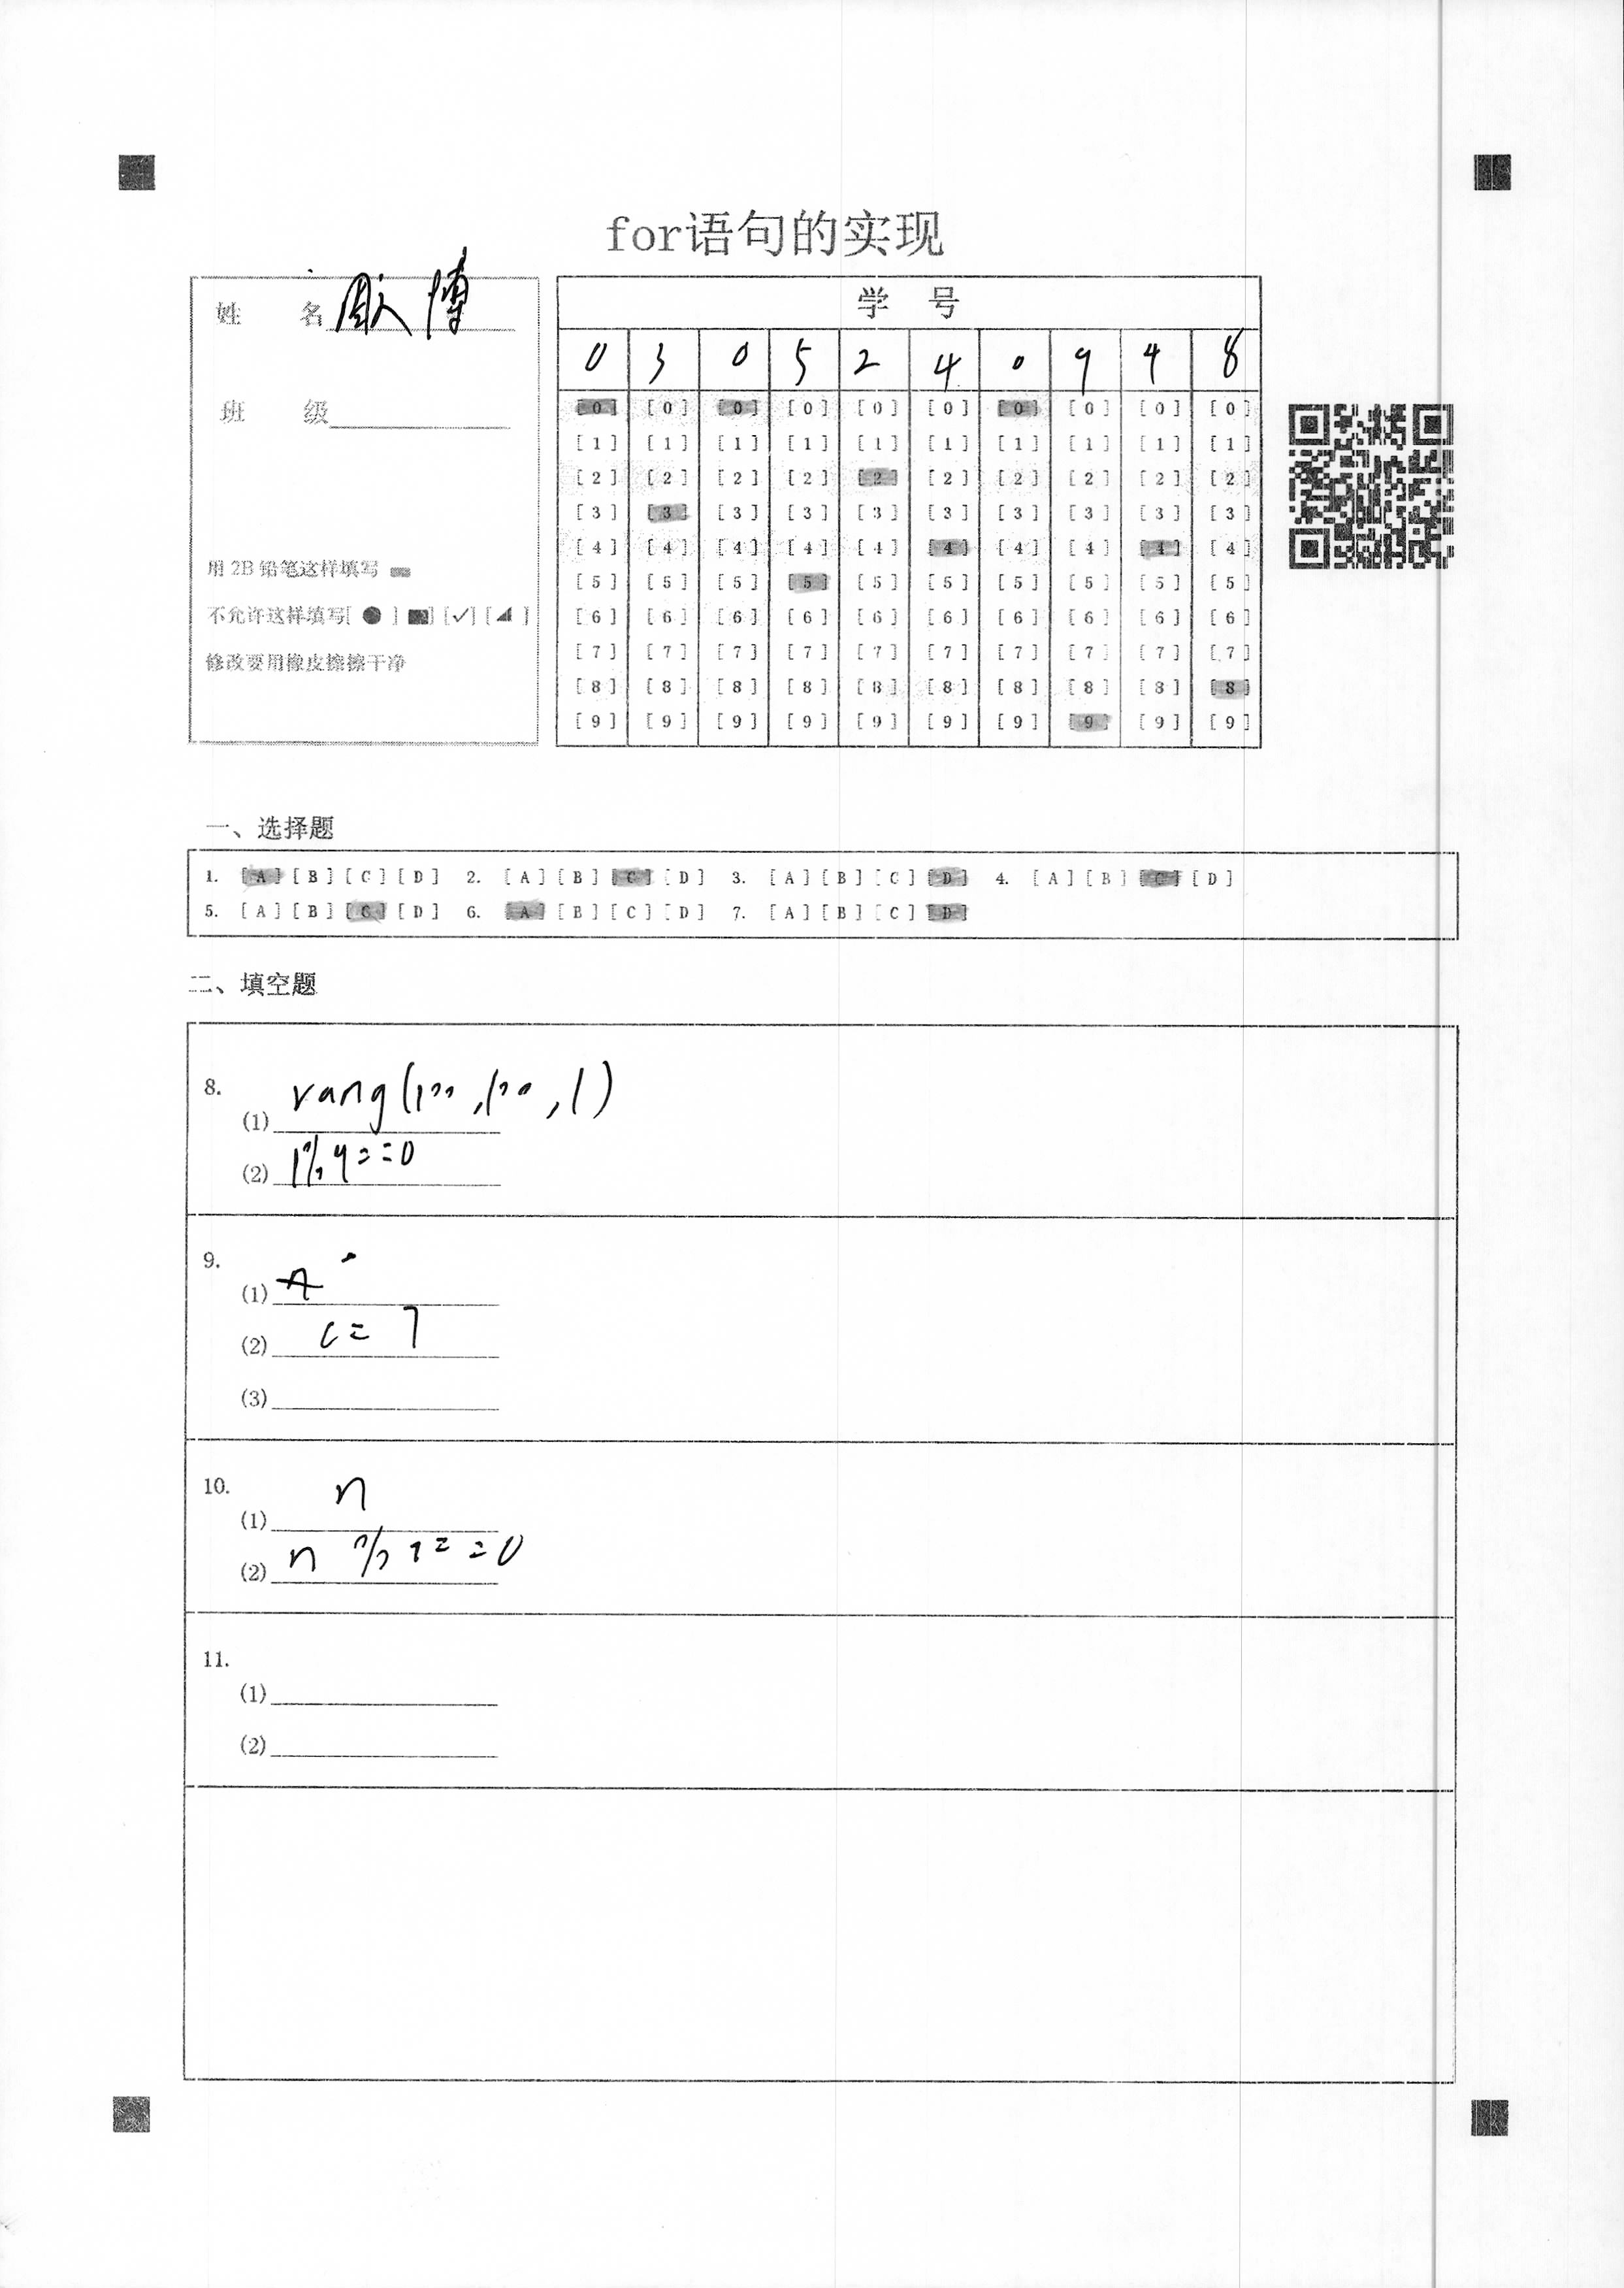 for语句的实现
姓 名
班 级
用 2B 铅笔这样填写
不允许这样填写[ ● ] [■] [✓] [◢ ]
修改要用橡皮擦擦干净
学 号
0 3 0 5 2 4 0 9 4 8
[0] [0] [0] [0] [0] [0] [0] [0] [0] [0]
[1] [1] [1] [1] [1] [1] [1] [1] [1] [1]
[2] [2] [2] [2] [2] [2] [2] [2] [2] [2]
[3] [3] [3] [3] [3] [3] [3] [3] [3] [3]
[4] [4] [4] [4] [4] [4] [4] [4] [4] [4]
[5] [5] [5] [5] [5] [5] [5] [5] [5] [5]
[6] [6] [6] [6] [6] [6] [6] [6] [6] [6]
[7] [7] [7] [7] [7] [7] [7] [7] [7] [7]
[8] [8] [8] [8] [8] [8] [8] [8] [8] [8]
[9] [9] [9] [9] [9] [9] [9] [9] [9] [9]
一、选择题
1. [A] [B] [C] [D] 2. [A] [B] [C] [D] 3. [A] [B] [C] [D] 4. [A] [B] [C] [D]
5. [A] [B] [C] [D] 6. [A] [B] [C] [D] 7. [A] [B] [C] [D]
二、填空题
8.
(1) rang(100,100,1)
(2) 1%4==0
9.
(1)
(2) c=7
(3)
10.
(1) n
(2) n % ==0
11.
(1)
(2)